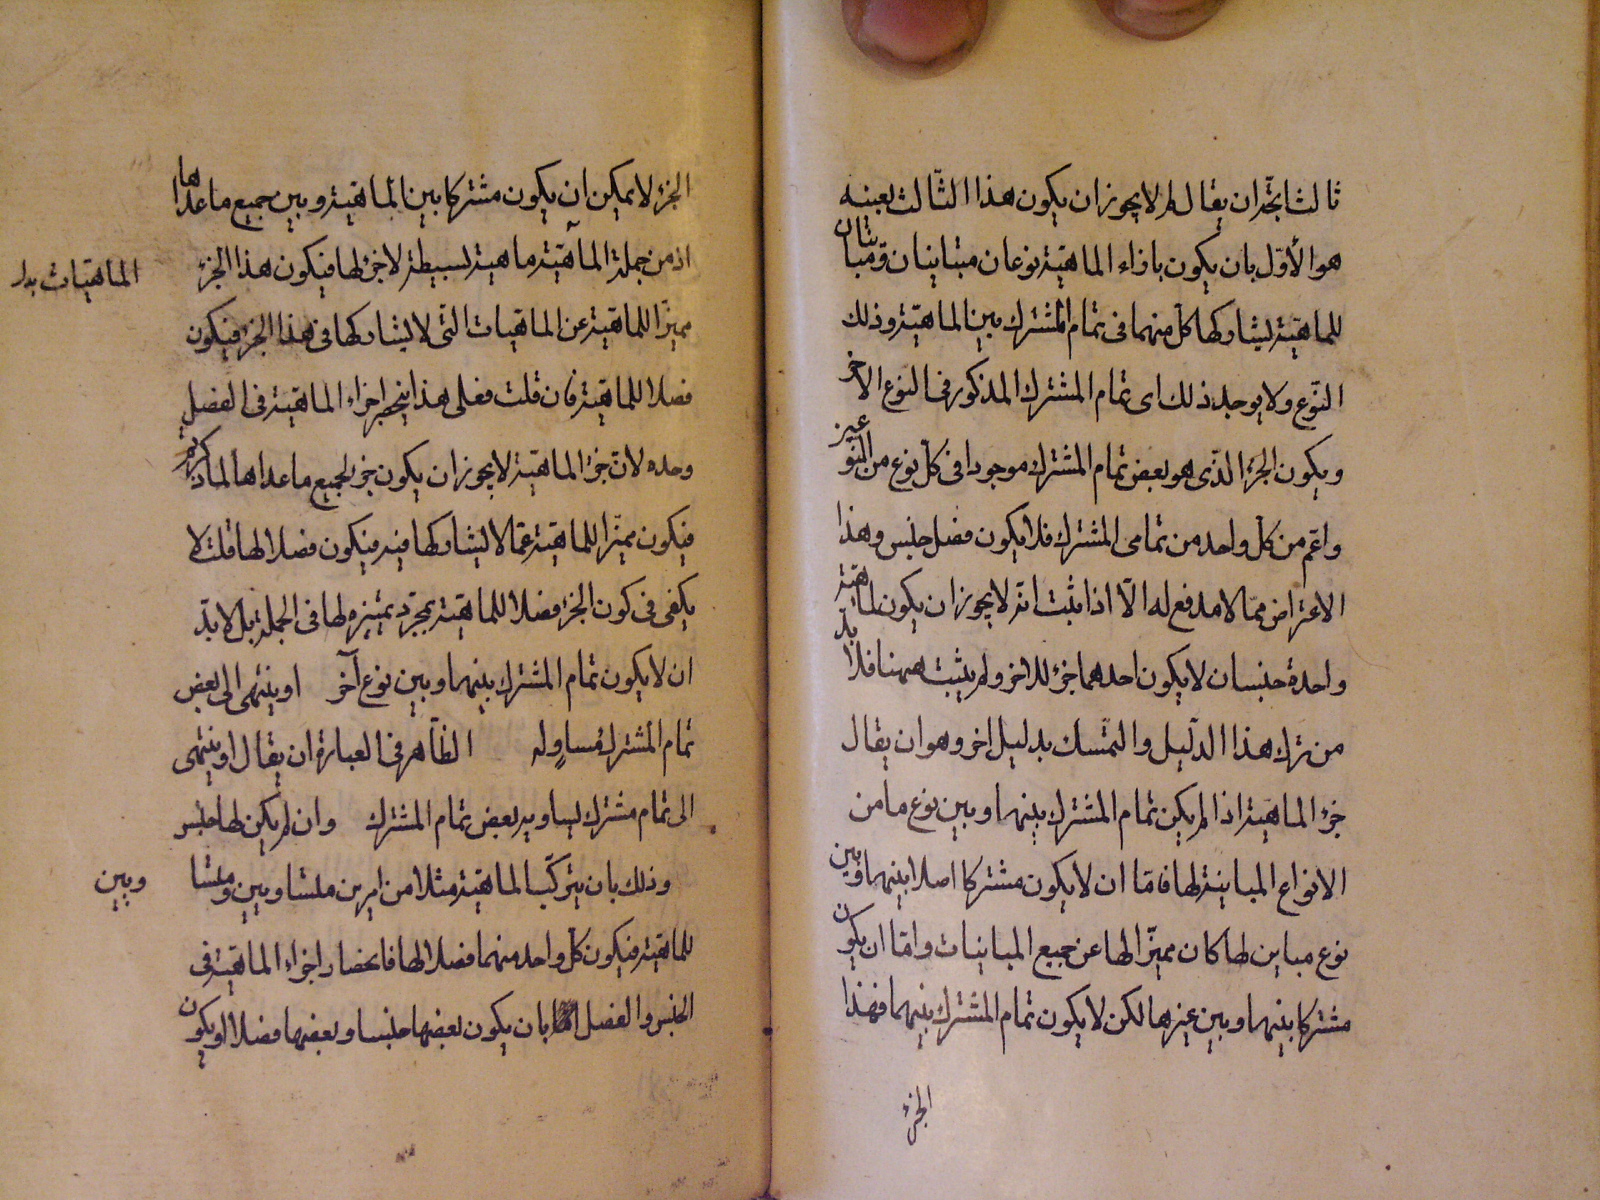 ثالثا بتجه ان يقال لم لا يجوز ان يكون هذا الثالث بعينه
هو الأوّل بان يكون بازاء الماهيّة نوعان متباينان ومباينان
للماهيّة يشاركها كل منهما فى تمام المشترك بين الماهيّة وذلك
النّوع ولا يوجد ذلك اى تمام المشترك المذكور فى النوع الآخر
ويكون الجزء الذى هو بعض تمام المشترك موجودا فى كل نوع من النوعين
واعم من كل واحد من تمامى المشترك فلا يكون فصل جنس وهذا
الاعتراض ممّا لا مدفع له الّا اذا ثبت انّه لا يجوز ان يكون لماهيّة
واحدة جنسان لا يكون احدهما جزء للاخر ولم يثبت ههنا فلا بدّ
من ترك هذا الدّليل والتمّسك بدليل اخر وهو ان يقال
جزء الماهيّة اذا لم يكن تمام المشترك بينها وبين نوع ما من
الانواع المباينة لها فامّا ان لا يكون مشتركا اصلا بينها وبين
نوع مباين لها كان مميّزا لها عن جميع المباينات وامّا ان يكون
مشتركا بينها وبين غيرها لكن لا يكون تمام المشترك بينهما فهذا
الجزء
الجزء لا يمكن ان يكون مشتركا بين الماهيّة وبين جميع ما عداها
اذ من جملة الماهيّة ماهيّة بسيطة لا جزء لها فيكون هذا الجزء
الماهيّات بدل
مميزّا للماهيّة عن الماهيات التّى لا يشاركها فى هذا الجزء فيكون
فصلا للماهيّة فان قلت فعلى هذا ينحصر اجزاء الماهيّة فى الفصل
وحده لانّ جزء الماهيّة لا يجوز ان يكون جزء لجميع ما عداها لما ذكرتم
فيكون مميّزا للماهيّة عمّا لا يشاركها فيه فيكون فصلا لها قلت لا
يكفى فى كون الجزء فصلا للماهيّة بمجرّد تمييزه لها فى الجملة بل لا بدّ
ان لا يكون تمام المشترك بينها وبين نوع آخر او ينتهى الى بعض
تمام المشترك مساوٍ له الظّاهر فى العبارة ان يقال او ينتهى
الى تمام مشترك يساويه بعض تمام المشترك وان لم يكن لها جنس
وذلك بان يتركّب الماهيّة مثلا من امرين متساويين ومتشا
وبين
للماهيّة فيكون كل واحد منهما فصلا لها فانحصار اجزاء الماهيّة فى
الجنس والفصل بان يكون بعضها جنسا وبعضها فصلا او يكون